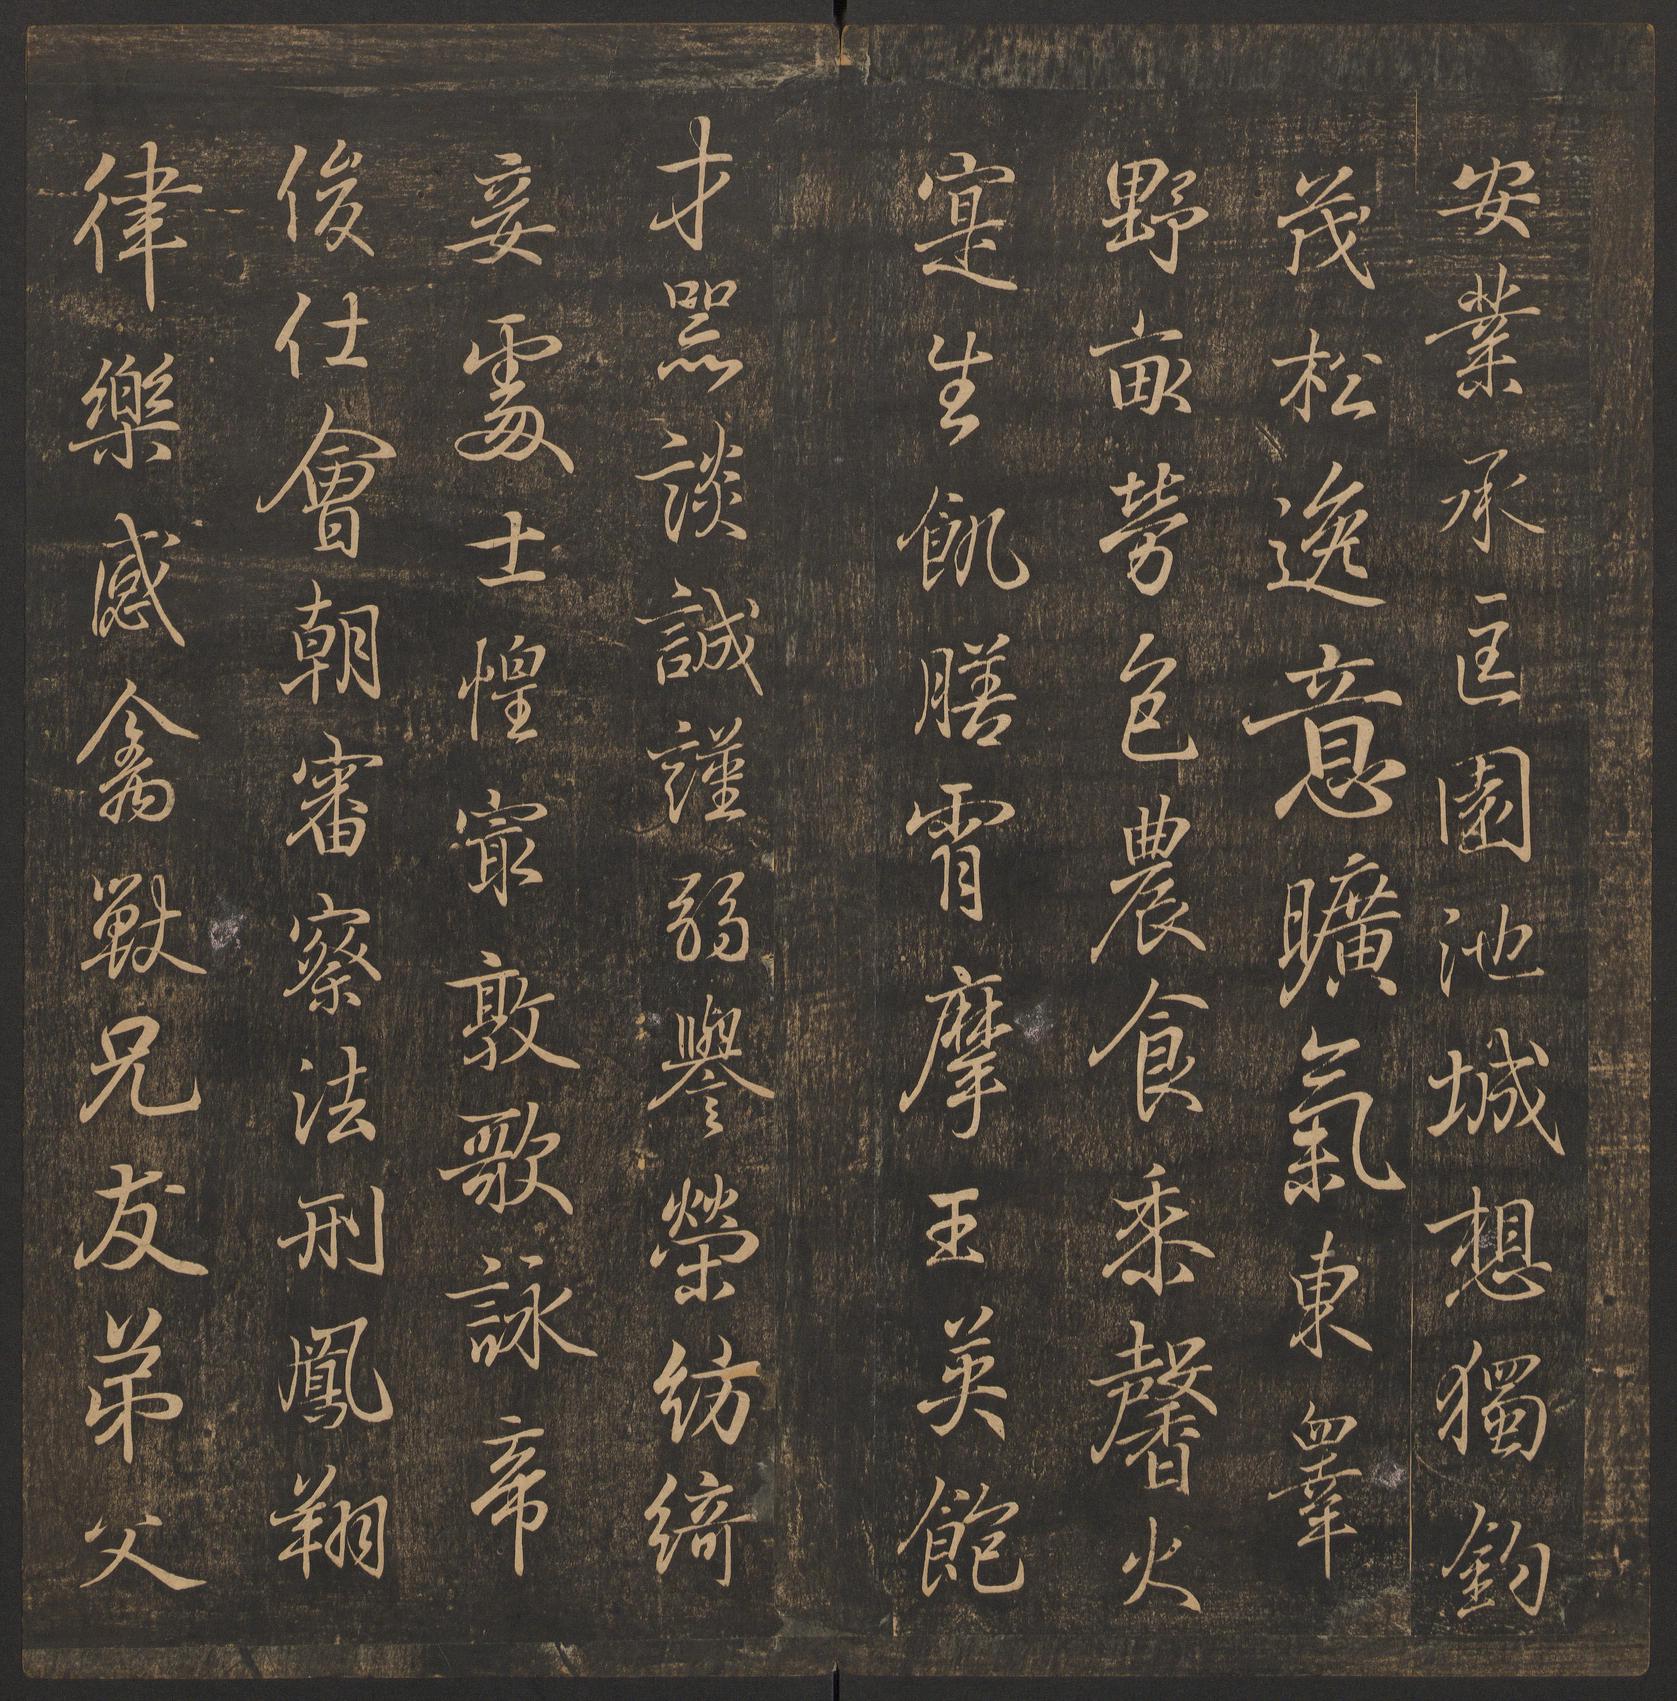 安業承匡園池城想獨釣
茂松逸意曠氣東睾
野畝勞色農食黍馨火
寔生飢膳霄摩王英飽
才器談誠謹弱譽榮紡綺
妾處士惶㝡敦歌詠帝
俊仕會朝審察法刑鳳翔
律樂感禽獸兄友弟父